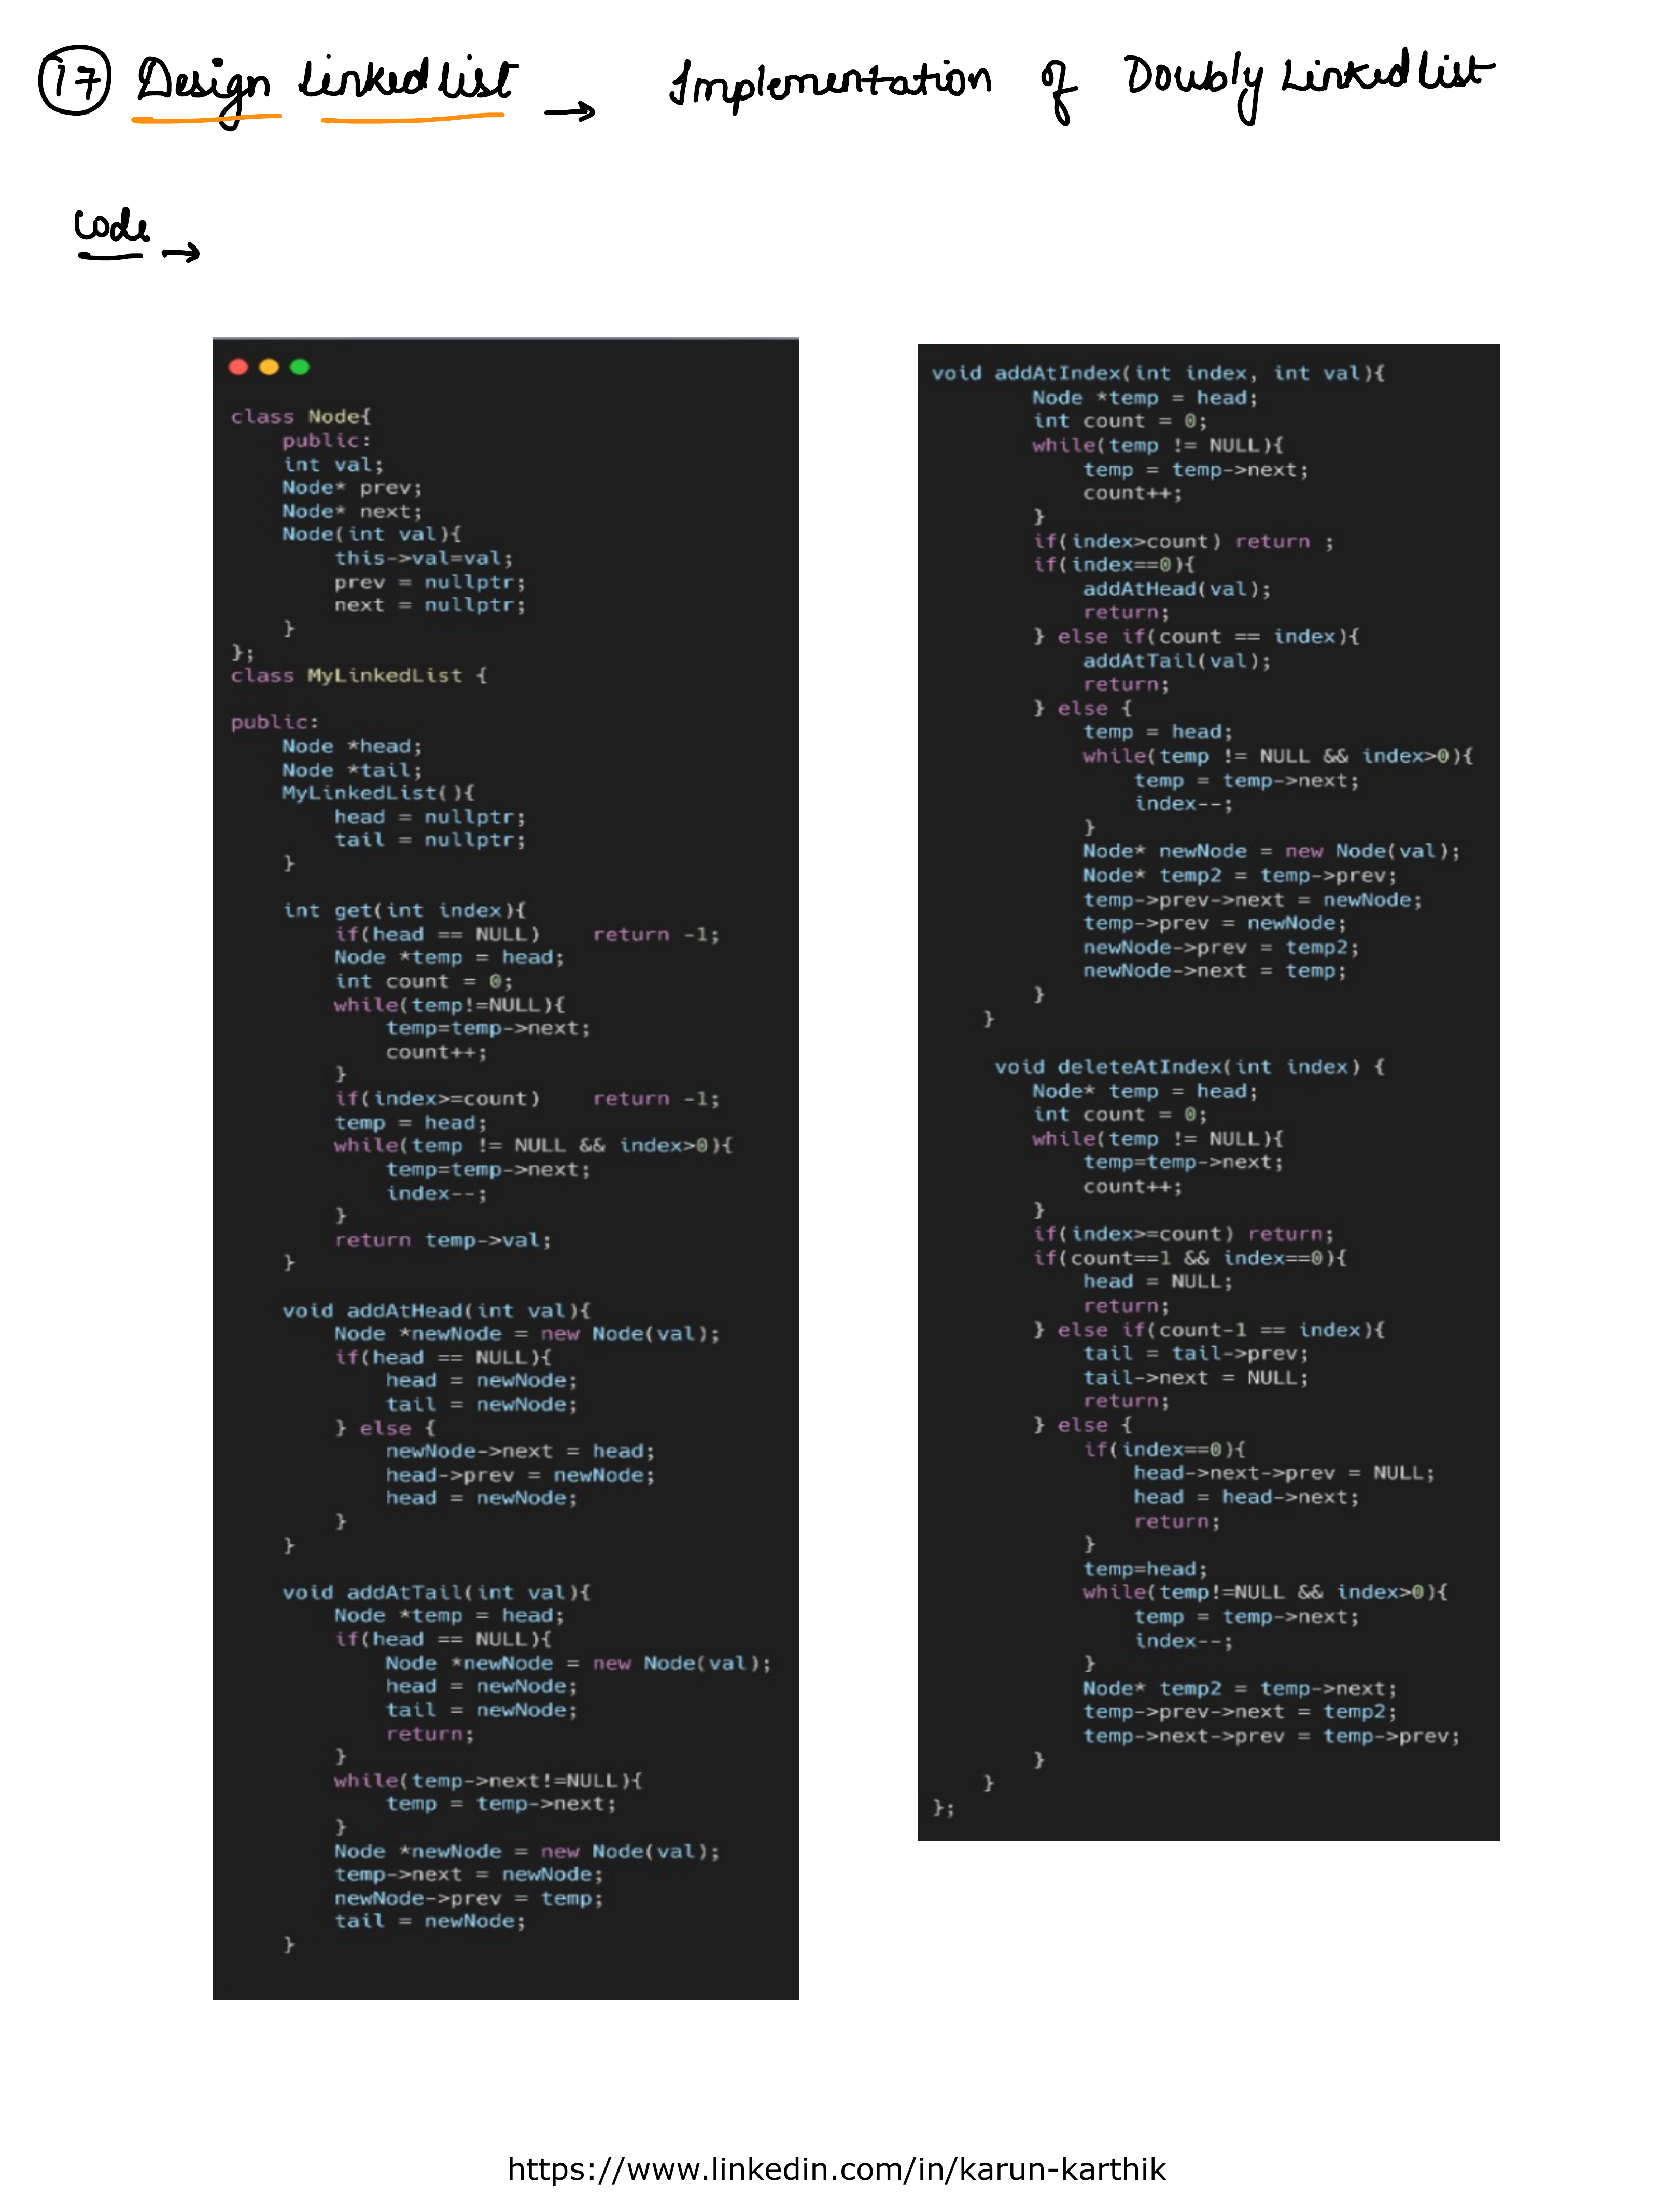 17 Design Linked list → Implementation of Doubly Linked list
Code →
class Node{
    public:
    int val;
    Node* prev;
    Node* next;
    Node(int val){
        this->val=val;
        prev = nullptr;
        next = nullptr;
    }
};
class MyLinkedList {
public:
    Node *head;
    Node *tail;
    MyLinkedList(){
        head = nullptr;
        tail = nullptr;
    }
    int get(int index){
        if(head == NULL)    return -1;
        Node *temp = head;
        int count = 0;
        while(temp!=NULL){
            temp=temp->next;
            count++;
        }
        if(index>=count)    return -1;
        temp = head;
        while(temp != NULL && index>0){
            temp=temp->next;
            index--;
        }
        return temp->val;
    }
    void addAtHead(int val){
        Node *newNode = new Node(val);
        if(head == NULL){
            head = newNode;
            tail = newNode;
        } else {
            newNode->next = head;
            head->prev = newNode;
            head = newNode;
        }
    }
    void addAtTail(int val){
        Node *temp = head;
        if(head == NULL){
            Node *newNode = new Node(val);
            head = newNode;
            tail = newNode;
            return;
        }
        while(temp->next!=NULL){
            temp = temp->next;
        }
        Node *newNode = new Node(val);
        temp->next = newNode;
        newNode->prev = temp;
        tail = newNode;
    }
void addAtIndex(int index, int val){
        Node *temp = head;
        int count = 0;
        while(temp != NULL){
            temp = temp->next;
            count++;
        }
        if(index>count) return ;
        if(index==0){
            addAtHead(val);
            return;
        } else if(count == index){
            addAtTail(val);
            return;
        } else {
            temp = head;
            while(temp != NULL && index>0){
                temp = temp->next;
                index--;
            }
            Node* newNode = new Node(val);
            Node* temp2 = temp->prev;
            temp->prev->next = newNode;
            temp->prev = newNode;
            newNode->prev = temp2;
            newNode->next = temp;
        }
    }
    void deleteAtIndex(int index) {
        Node* temp = head;
        int count = 0;
        while(temp != NULL){
            temp=temp->next;
            count++;
        }
        if(index>=count) return;
        if(count==1 && index==0){
            head = NULL;
            return;
        } else if(count-1 == index){
            tail = tail->prev;
            tail->next = NULL;
            return;
        } else {
            if(index==0){
                head->next->prev = NULL;
                head = head->next;
                return;
            }
            temp=head;
            while(temp!=NULL && index>0){
                temp = temp->next;
                index--;
            }
            Node* temp2 = temp->next;
            temp->prev->next = temp2;
            temp->next->prev = temp->prev;
        }
    }
};
https://www.linkedin.com/in/karun-karthik